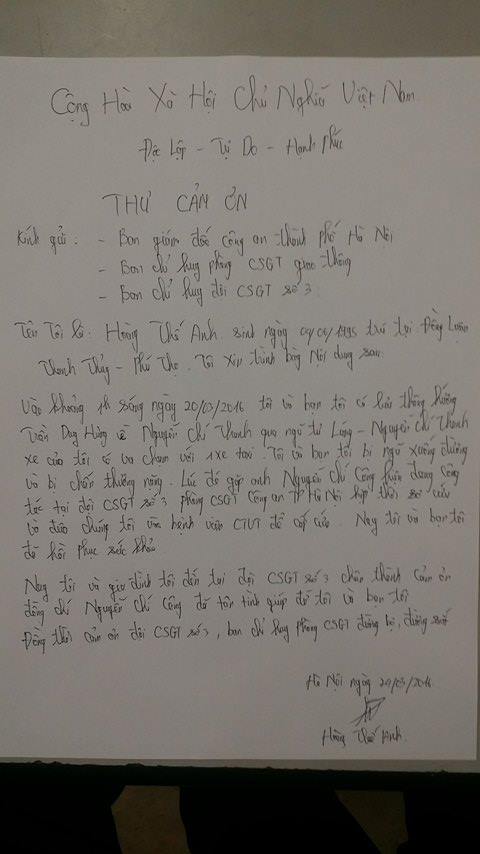 Cộng Hòa Xã Hội Chủ Nghĩa Việt Nam
Độc Lập - Tự Do - Hạnh Phúc
THƯ CẢM ƠN
Kính gửi: - Ban giám đốc công an thành phố Hà Nội
- Ban chỉ huy phòng CSGT giao thông
- Ban chỉ huy đội CSGT số 3
Tên tôi là: Hoàng Thế Anh sinh ngày 1995 trú tại Đồng Luận
Thanh Thủy - Phú Thọ. Tôi xin trình bày nội dung sau
Vào khoảng 1h sáng ngày 20/03/2016 tôi và bạn tôi có lưu thông hướng
Trần Duy Hưng về Nguyễn Chí Thanh qua ngã tư Láng - Nguyễn Chí Thanh
xe của tôi có va chạm với 1 xe taxi. Tôi và bạn tôi bị ngã xuống đường
và bị chấn thương nặng. Lúc đó gặp anh Nguyễn Chí Công hiện đang công
tác tại đội CSGT số 3 phòng CSGT Công an TP Hà Nội kịp thời sơ cứu
và đưa chúng tôi vào bệnh viện GTVT để cấp cứu. Nay tôi và bạn tôi
đã hồi phục sức khỏe
Nay tôi và gia đình tôi đến tại đội CSGT số 3 chân thành cảm ơn
đồng chí Nguyễn Chí Công đã tận tình giúp đỡ tôi và bạn tôi
Đồng thời cảm ơn đội CSGT số 3, ban chỉ huy phòng CSGT đường bộ, đường sắt
Hà Nội ngày 24/03/2016
Hoàng Thế Anh